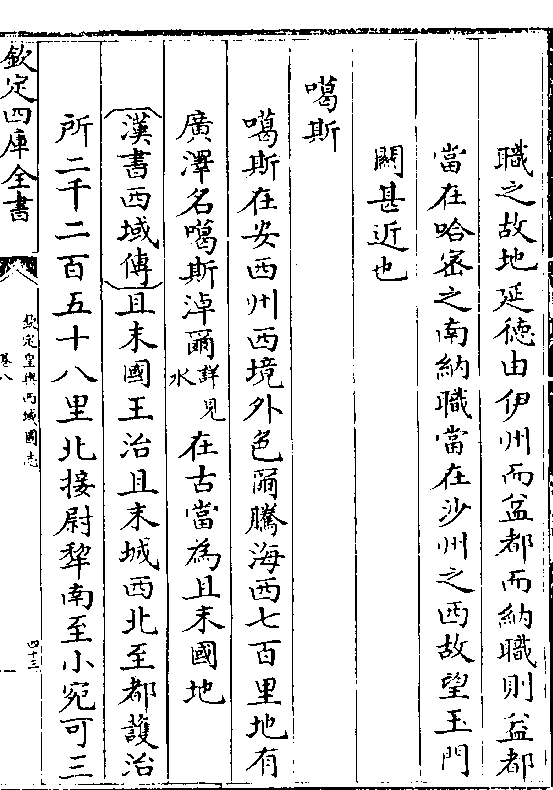 職之故地延德由伊州而益都而納職則益都
當在哈密之南納職當在沙州之西故望玉門
關甚近也
噶斯
噶斯在安西州西境外色爾騰海西七百里地有
廣澤名噶斯淖爾詳見水在古當為且末國地
漢書西域傳且末國王治且末城西北至都護治
所二千二百五十八里北接尉犂南至小宛可三
欽定四庫全書
欽定皇輿西域圖志
卷八
四十三